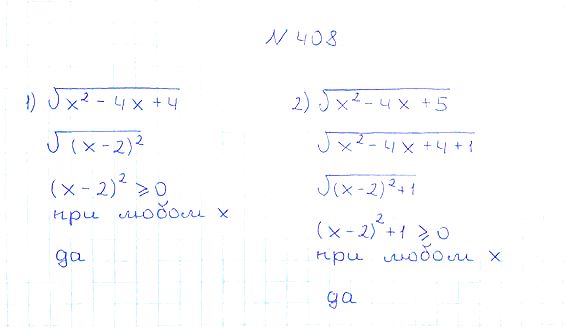 N 408
1) √(x² - 4x + 4)
√((x - 2)²)
(x - 2)² ⩾ 0
при любом x
да
2) √(x² - 4x + 5)
√(x² - 4x + 4 + 1)
√((x - 2)² + 1)
(x - 2)² + 1 ⩾ 0
при любом x
да